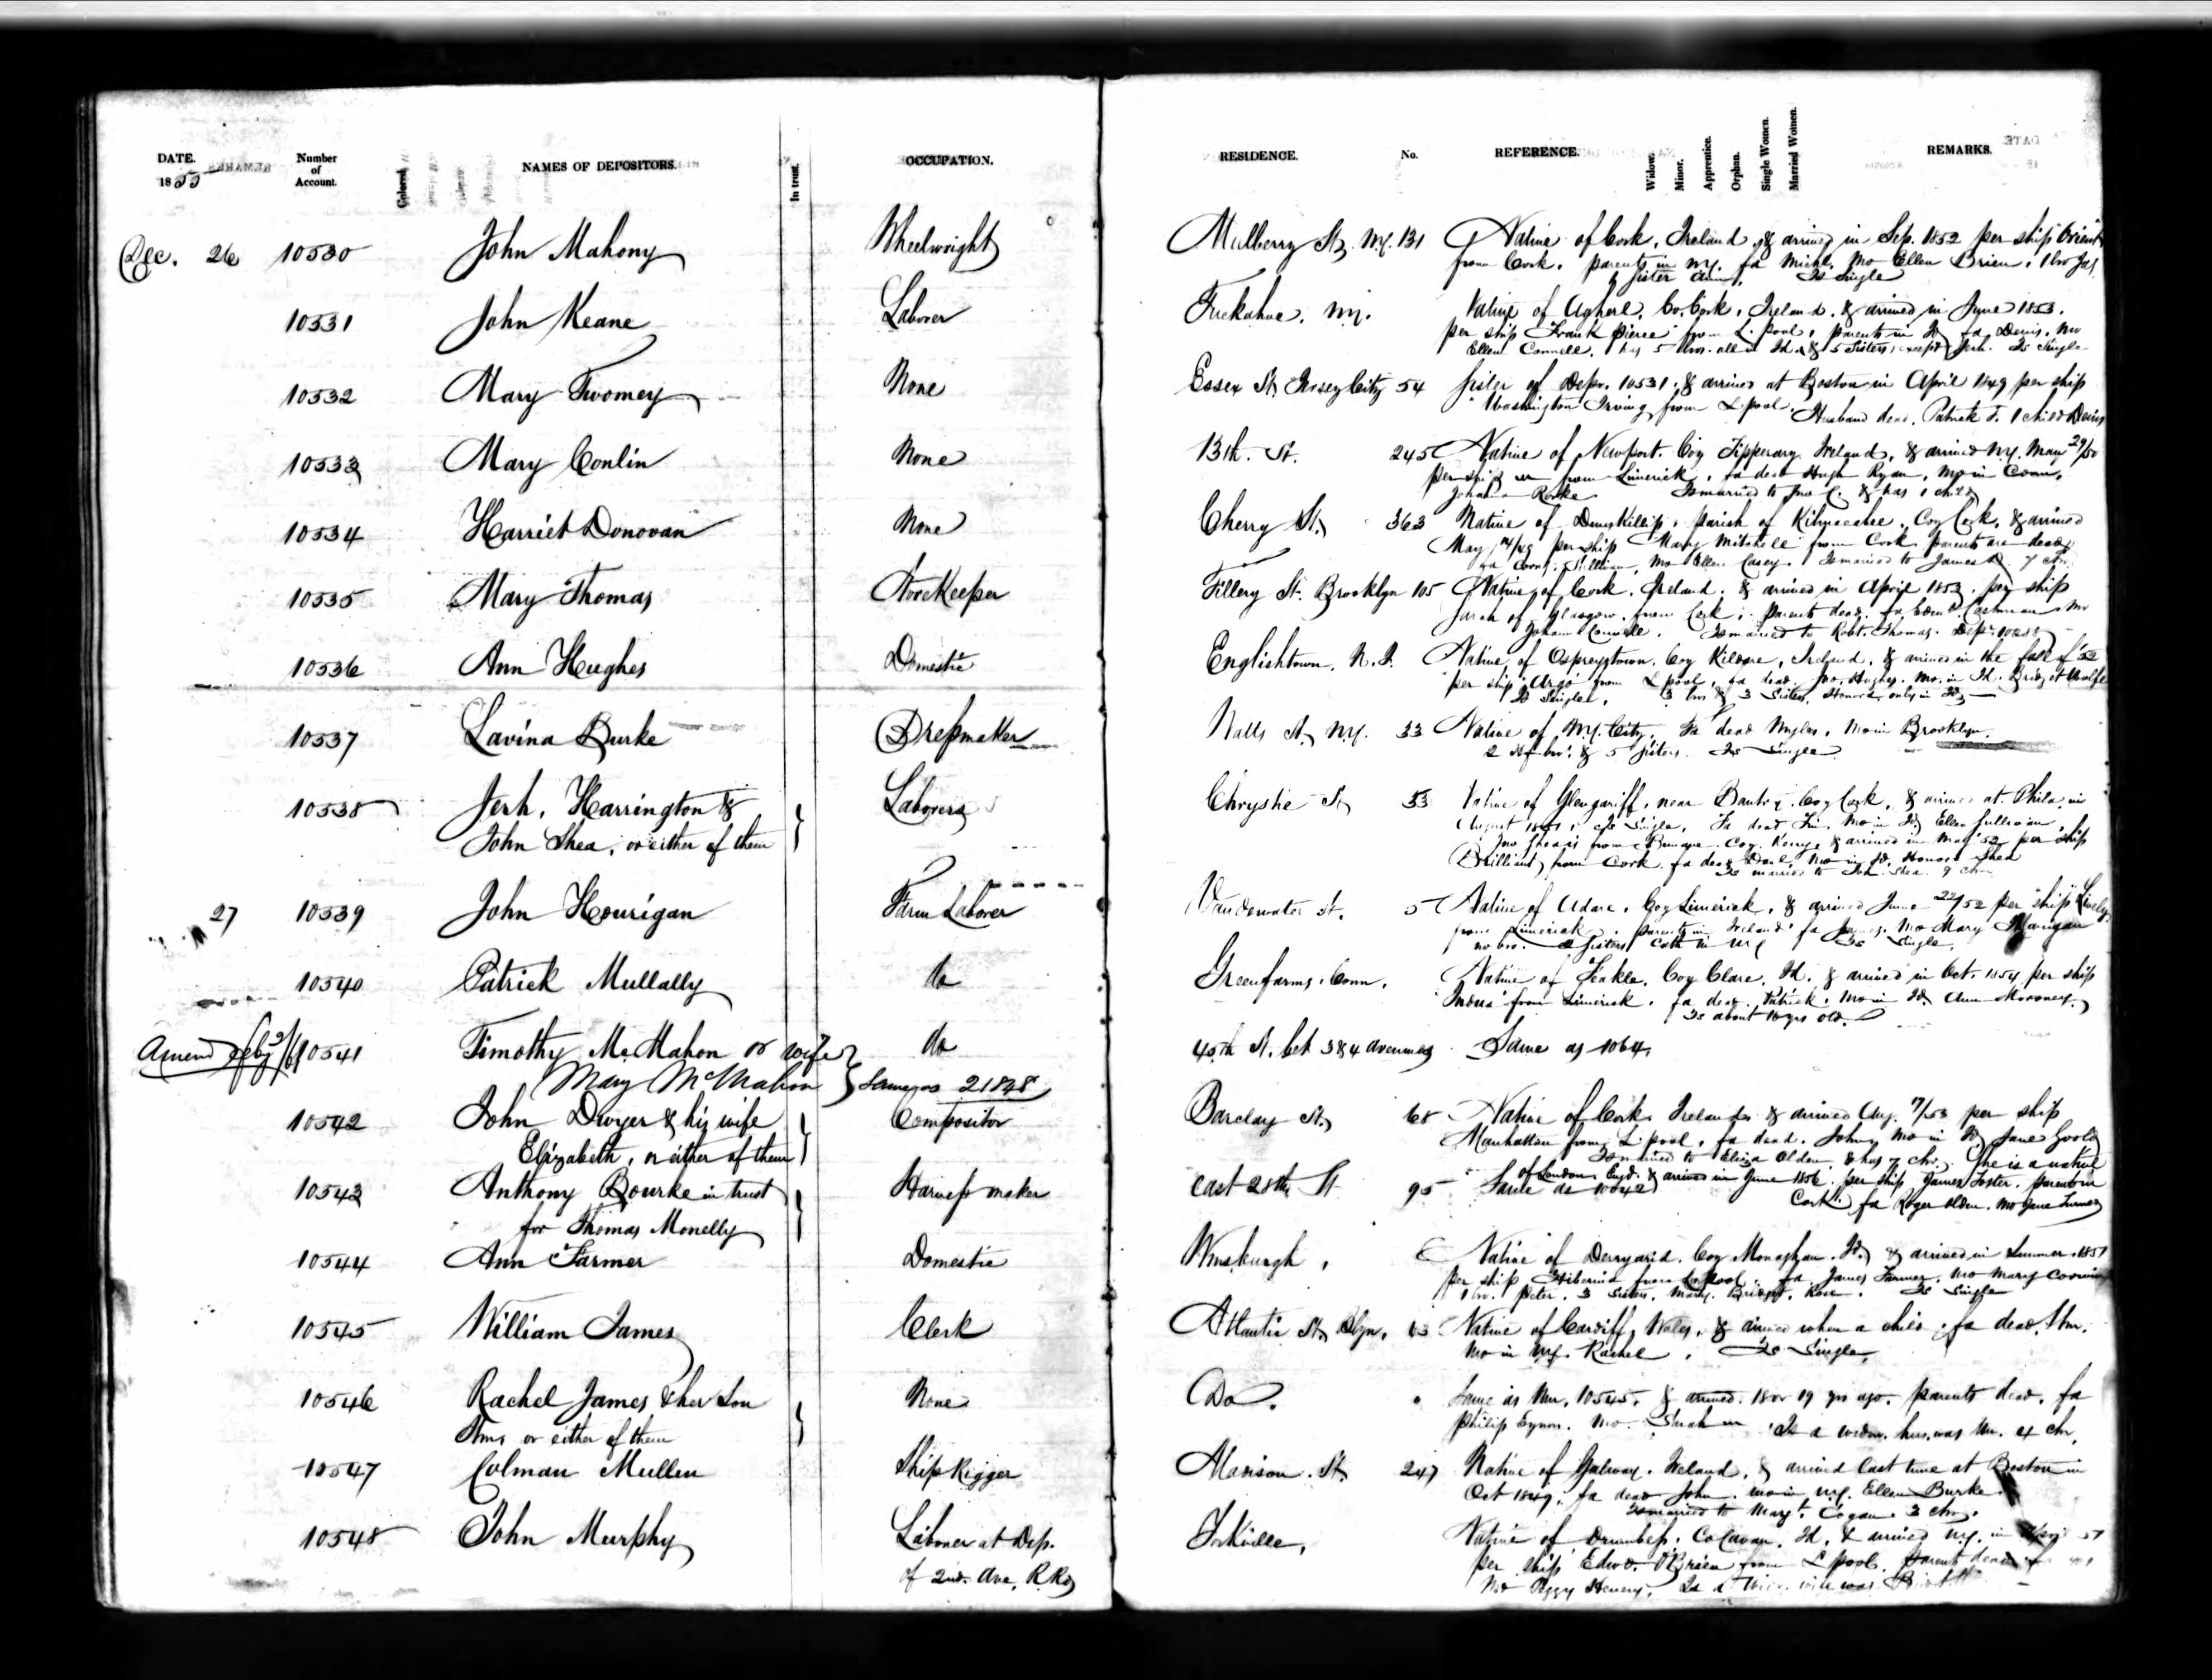 DATE. Number of Account. Colored. NAMES OF DEPOSITORS. In trust. OCCUPATION. RESIDENCE. No. REFERENCE. Widow. Minor. Apprentice. Orphan. Single Women. Married Women. REMARKS.
1855
Dec. 26 10530 John Mahony Wheelwright Mulberry St, N.Y. 131 Native of Cork, Ireland, & arrived in Sep. 1852 per ship Orient
from Cork. parents in N.Y. fa Michl. Mo Ellen Brien. 1 bro Jas
& sister Ann. Is Single
10531 John Keane Laborer Tuckahoe, N.Y. Native of Aghern, Co. Cork, Ireland, & arrived in June 1853.
per ship Frank Pierce from L.pool. parents in Id fa Denis. Mo
Ellen Connell. has 5 bros. all in Id. & 5 Sisters, except Jerh. Is Single
10532 Mary Twomey None Essex St, Jersey City 54 Sister of Depr. 10531. & arrived at Boston in April 1849 per ship
Washington Irving from L.pool. Husband dead, Patrick T. 1 child Denis
10533 Mary Conlin None 13th. St. 245 Native of Newport. Coy Tipperary Ireland, & arrived N.Y. May 29/50
per ship from Limerick, fa dead Hugh Ryan, Mo in Conn,
Is married to Jno C. & has 1 child
10534 Harriet Donovan None Cherry St, 363 Native of parish of Coy Cork, & arrived
May 14/49 per ship Mary Mitchell from Cork parents are dead,
fa Sullivan, Mo Ellen Casey. Is married to James D. 7 chn.
10535 Mary Thomas StoreKeeper Tillery St. Brooklyn 105 Native of Cork, Ireland, & arrived in April 1853. per ship
Sarah of Glasgow, from Cork. parents dead. fa Edmd. Cashman. Mo
Connell. Is married to Robt. Thomas. Depr.
10536 Ann Hughes Domestic Englishtown, N.J. Native of Ospreystown, Coy Kildare, Ireland, & arrived in the fall of 52
per ship Argo from L.pool, fa dead. Jno. Hughes. Mo. in Id. Bridget
Is Single. 3 bro & 3 Sisters, Honora only in Id,
10537 Lavina Burke Dressmaker St, N.Y. 33 Native of N.Y. City, Fa dead Myles, Mo in Brooklyn.
2 Hf bro. & 5 sisters. Is Single
10538 Jerh. Harrington & Laborers Chrystie St, 53 Native of Glengariff, near Bantry, Coy Cork, & arrived at Phila. in
John Shea, or either of them August 1851. Is Single. Fa dead Tim. Mo in Id, Ellen Sullivan.
Jno Shea is from Coy. Kerry, & arrived in May 52 per ship
Brilliant, from Cork. fa dead Danl. Mo in Id. Honora Shea
Is married to Joh. Shea. 9 chn
27 10539 John Hourigan Farm Laborer Vandewater St. 5 Native of Adare, Coy Limerick, & arrived June 22/52 per ship Lively
from Limerick. parents in Ireland fa James. Mo Mary Mangan
no bro. 2 sisters Cath in N.Y. Is Single.
10540 Patrick Mullally do Greenfarms, Conn. Native of Feakle, Coy Clare, Id. & arrived in Oct. 1854 per ship
from Limerick. fa dead. Patrick. Mo in Id, Ann Moroney.
Is about 16 yrs old.
Amend Feby 10541 Timothy McMahon or wife do 40th St. bet 3 & 4 avenues Same as 1064
Mary McMahon Same as 21848
10542 John Dwyer & his wife Compositor Barclay St, 68 Native of Cork, Ireland, & arrived Aug. 7/53 per ship
Elizabeth, or either of them Manhattan from L.pool. fa dead. John, Mo in Id, Jane Goold
Is married to Eliza Olden & has 7 chn. She is a native
of London Engd. & arrived in June 1856 per ship James Foster. parents in
Cork. fa Roger Olden. Mo Jane Turner
10543 Anthony Bourke in trust Harness maker East 28th St 95 Same as 10042
for Thomas Monelly
10544 Ann Farmer Domestic Wmsburgh, Native of Derryarid, Coy Monaghan, Id, & arrived in Summer 1851
per ship Hibernia from L.pool. fa James Farmer. Mo Mary
1 bro. Peter. 3 sisters, Mary. Bridget, Rose. Is Single
10545 William James Clerk Atlantic St, Blyn, 63 Native of Cardiff, Wales, & arrived when a child. fa dead. Wm.
Mo in N.Y. Rachel. Is Single.
10546 Rachel James & her Son None Do. " Same as Wm. 10545, & arrived 18 or 19 yrs ago. parents dead. fa
Wm, or either of them Philip Eynon. Mo. Sarah. Is a widow. hus. was Wm. 4 chn.
10547 Colman Mullen Ship Rigger Madison St, 247 Native of Galway, Ireland, & arrived last time at Boston in
Oct 1849. fa dead John. Mo in N.Y. Ellen Burke.
Is married to Margt. Cogan. 3 chn.
10548 John Murphy Laborer at Dep. Yorkville, Native of Drumbess, Co Cavan, Id, & arrived N.Y. in 51
of 2nd. Ave, R.Rd per ship Edwd. O'Brien from L.pool. parents dead
Mo Peggy Heney. Is a wife was